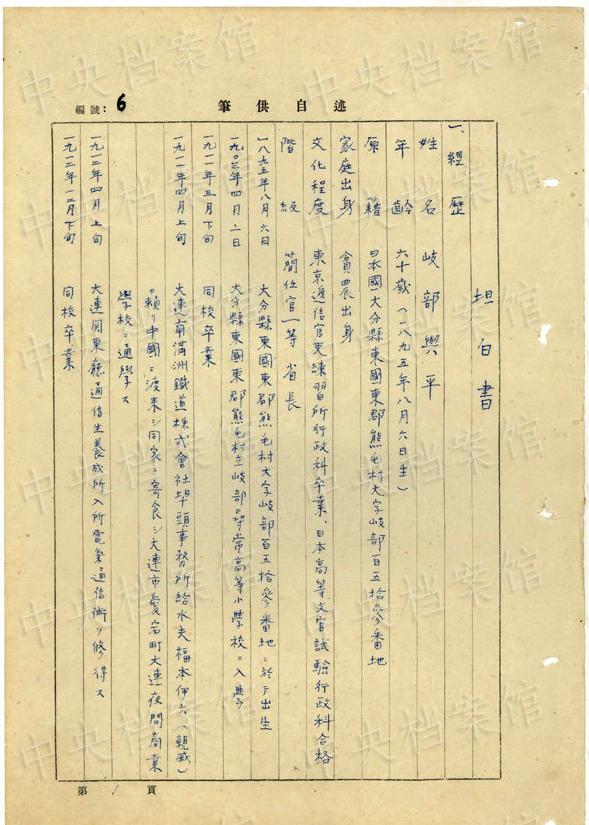 編號：6
述自供筆
坦白書
一、經歷
姓 名 岐部與平
年 齡 六十歲（一八九五年八月六日生）
原 籍 日本國大分縣東國東郡熊毛村大字岐部百五拾參番地
家庭出身 貧農出身
文化程度 東京遞信官吏練習所行政科卒業、日本高等文官試驗行政科合格
階 級 簡任官一等 省長
一八九五年八月六日 大分縣東國東郡熊毛村大字岐部百五拾參番地ニ於テ出生
一九〇三年四月一日 大分縣東國東郡熊毛村立岐部尋常高等小學校ニ入學
一九一一年三月下旬 同校卒業
一九一一年四月上旬 大連南滿洲鐵道株式會社埠頭事務所給水夫福本伊六（親戚）
ヲ賴リ中國ニ渡来シ同家ニ寄食シ大連市愛宕町大連夜間商業
學校ニ通學ス
一九一二年四月上旬 大連関東廳通信生養成所入所電気通信術ヲ修得ス
一九一二年一二月下旬 同校卒業
第 1 頁
中央档案馆